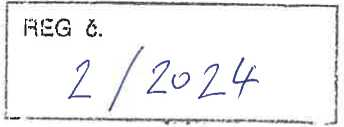 REG č.
2/2024